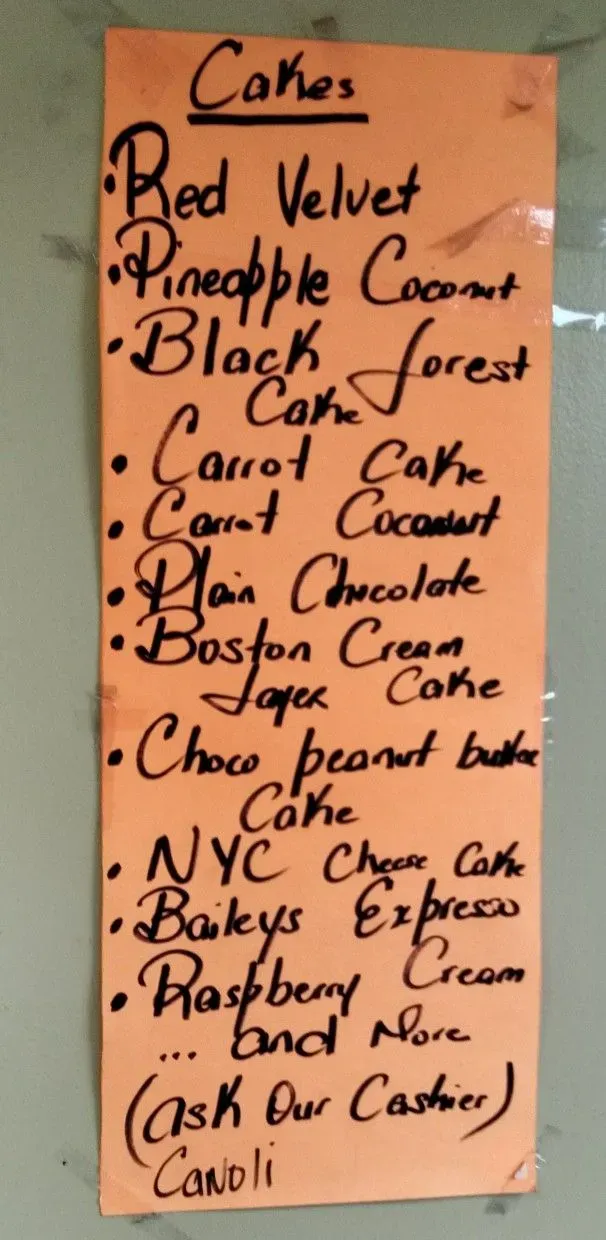 Cakes
• Red Velvet
• Pineapple Coconut
• Black forest
Cake
• Carrot Cake
• Carrot Coconut
• Plain Chocolate
• Boston Cream
Layer Cake
• Choco peanut butter
Cake
• NYC Cheese Cake
• Baileys Expresso
• Raspberry Cream
... and More
(ask Our Cashier)
Canoli